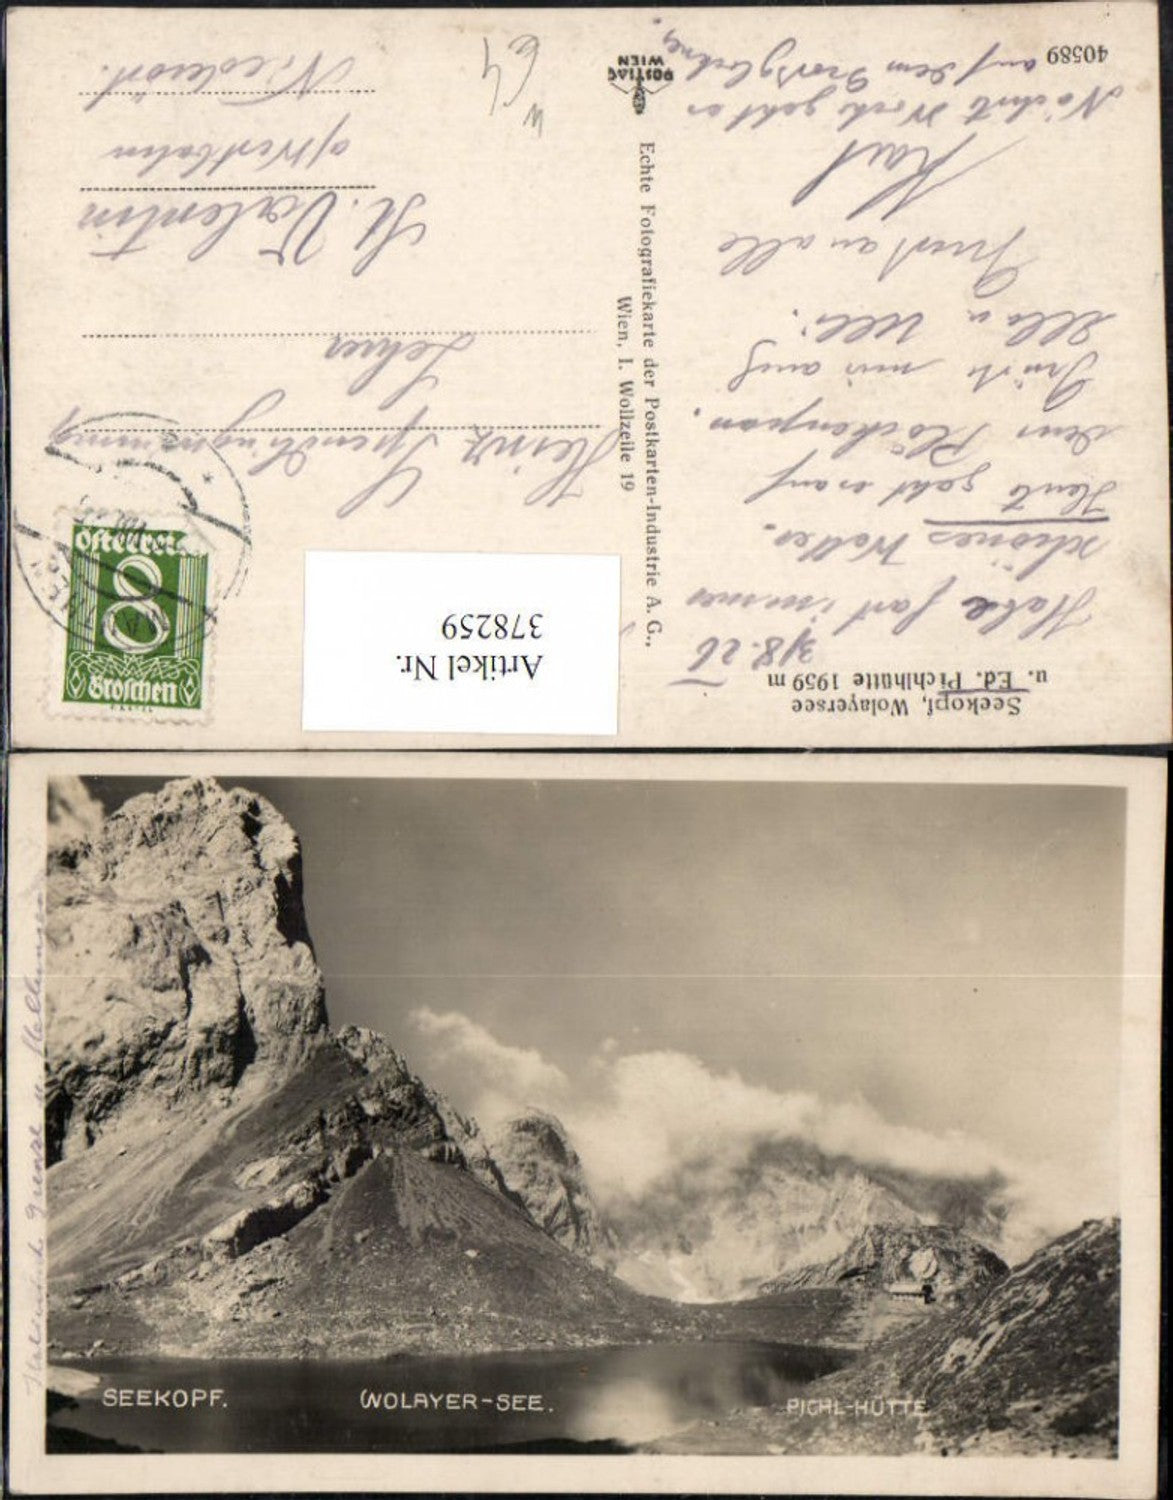 Seekopf, Wolayersee
u. Ed. Pichlhütte 1959 m
3/8. 26
Habe fast immer
schönes Wetter.
Heute geht es auf
den Plöckenpass.
Grüße mir auch
Ella u.
Gruß an alle
Karl
Nächste Woche geht es
auf den Großglockner.
40589
POSTIAG
WIEN
Echte Fotografiekarte der Postkarten-Industrie A. G.,
Wien, I. Wollzeile 19
64
Artikel Nr.
378259
Österreich
8
Groschen
Heinz
Lehrer
St. Valentin
a/Westbahn
Niederöst.
SEEKOPF.
WOLAYER-SEE.
PICHL-HÜTTE
Italienische Grenze u. Stellungen